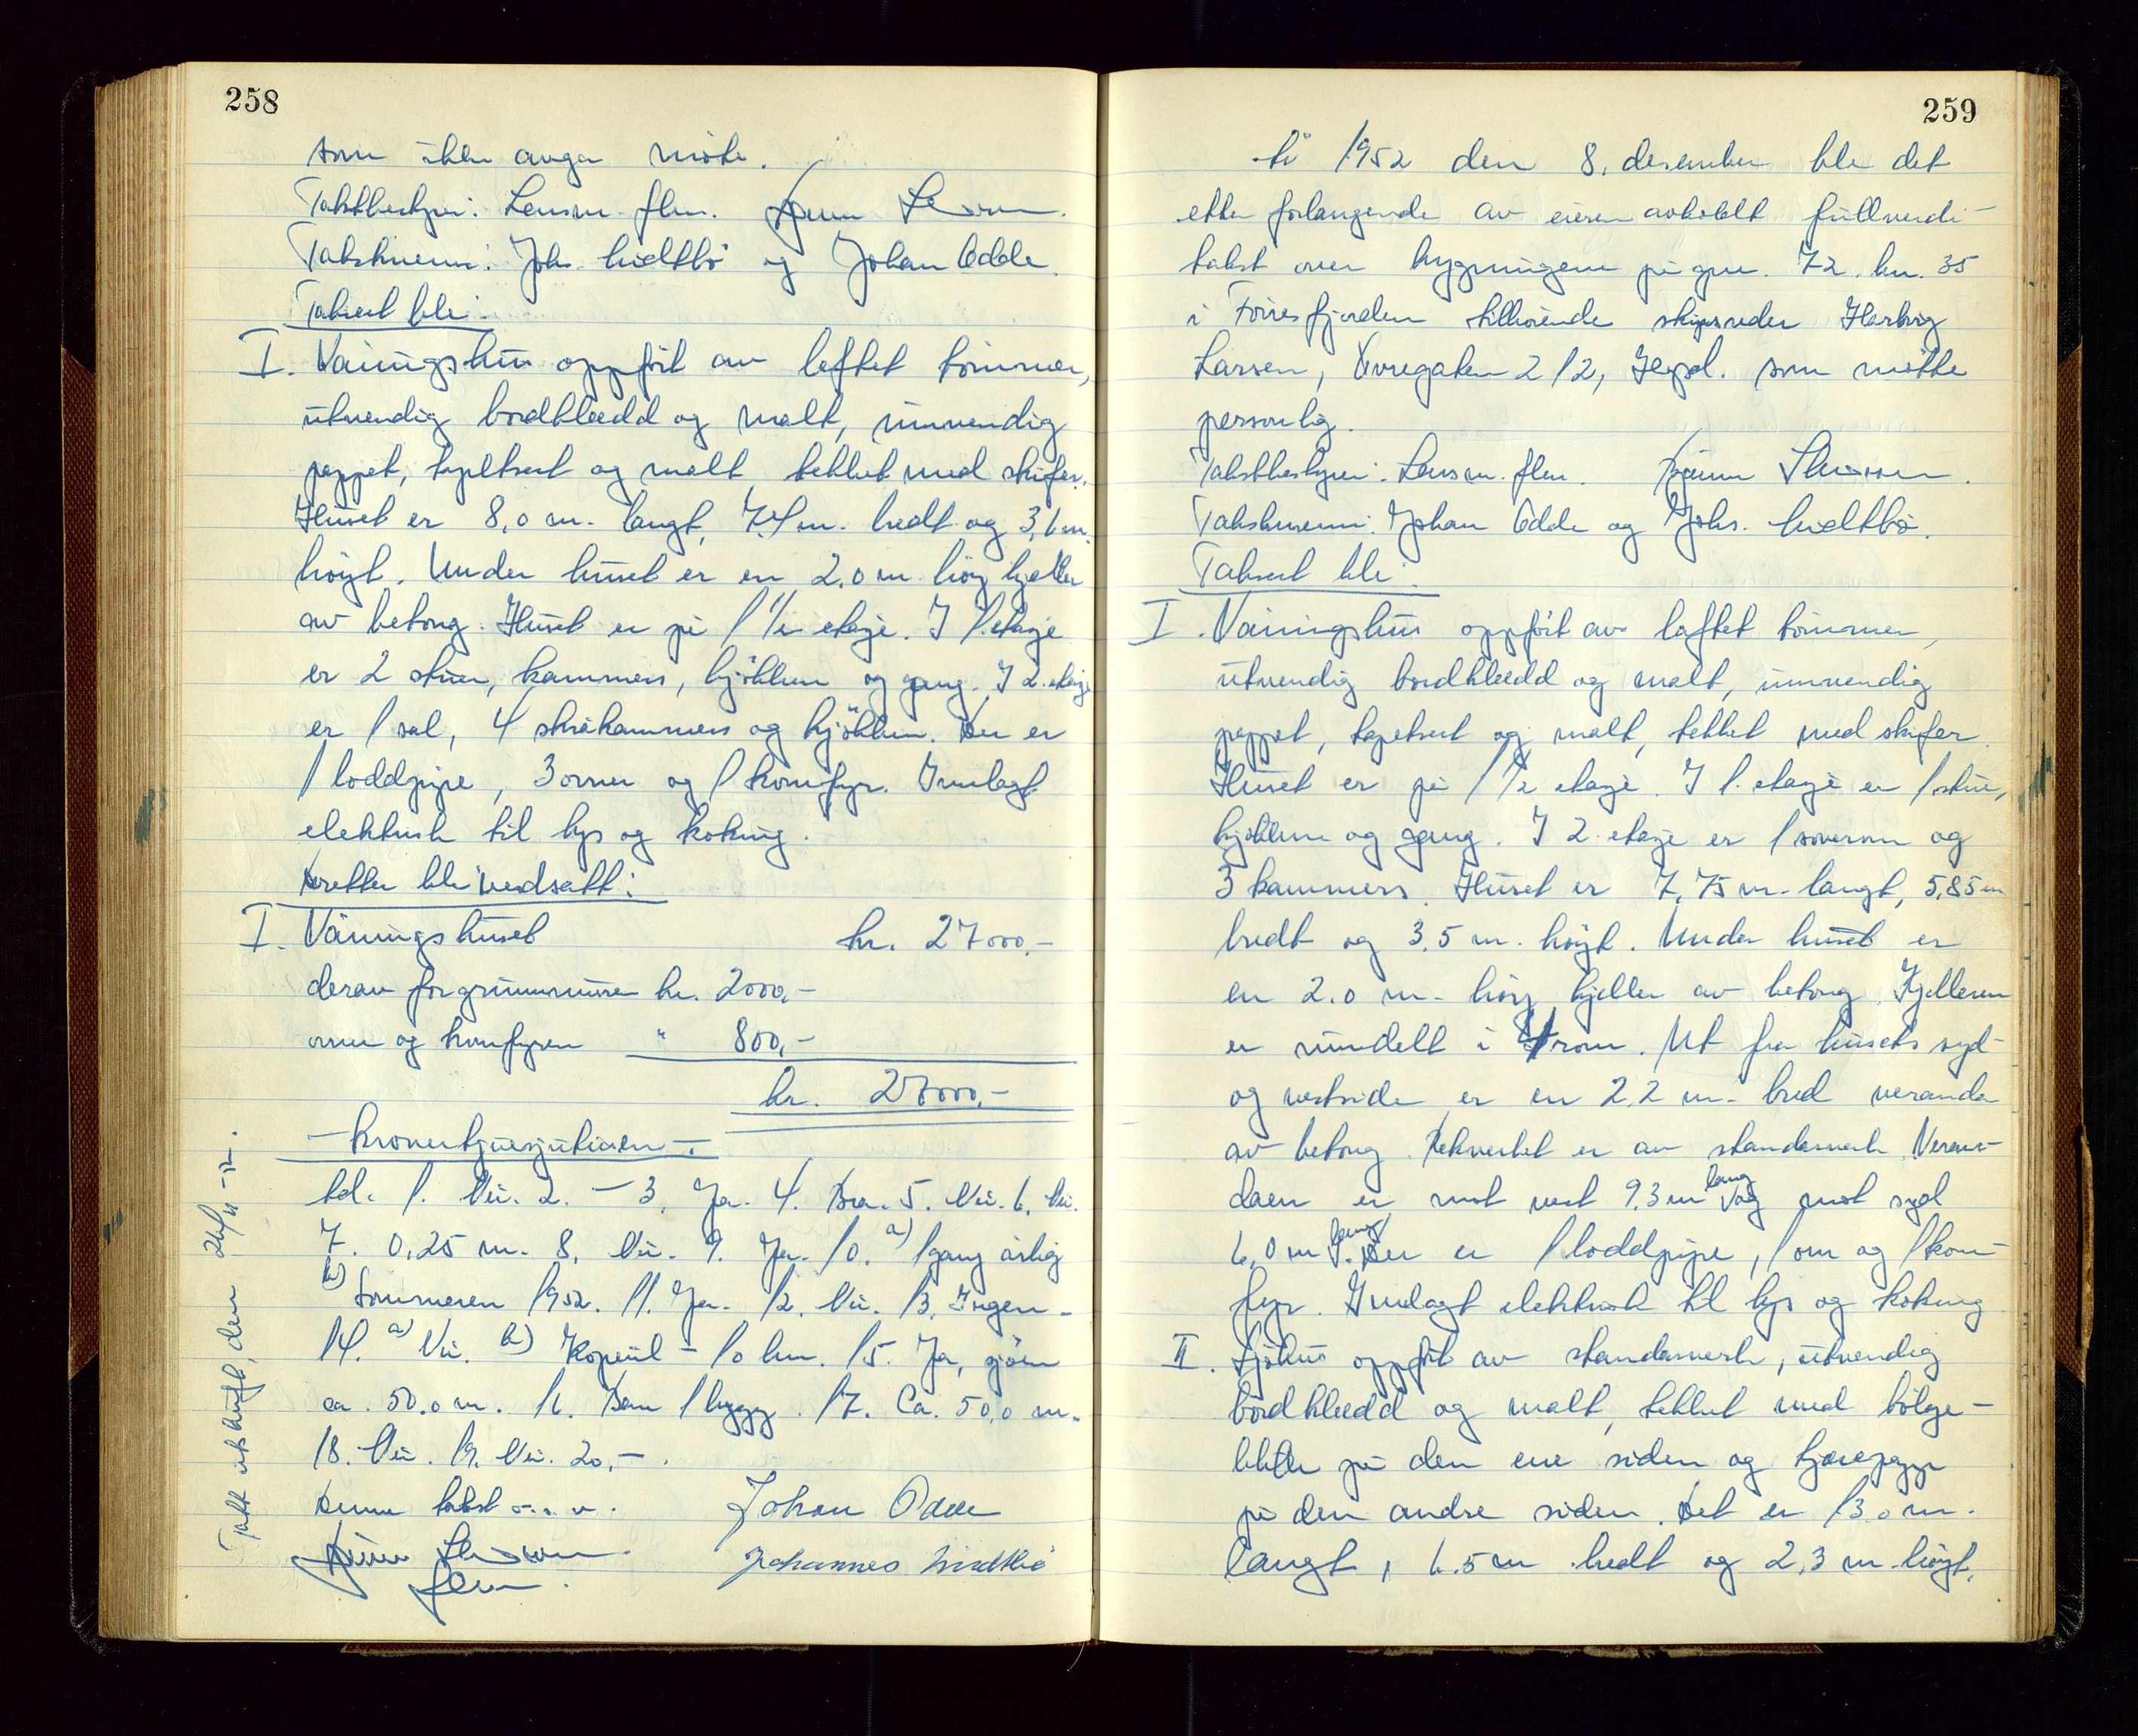 258
som ikke avga møte.
Takstbestyrer: Lensm. flm.
Takstmenn: Johs. Midtbø og Johan Odde.
Taksert ble:
I. Våningshus oppført av laftet tømmer,
utvendig bordkledd og malt, innvendig
pappet, tapetsert og malt, tekket med skifer.
Huset er 8,0 m. langt, 7,4 m. bredt og 3,6 m.
høyt. Under huset er en 2,0 m. høy kjeller
av betong. Huset er på 1 1/2 etasje. I 1. etasje
er 2 stuer, kammers, kjøkken og gang. I 2. etasje
er 1 sal, 4 skråkammers og kjøkken. Der er
1 loddpipe, 3 ovner og 1 komfyr. Innlagt
elektrisk til lys og koking.
Deretter ble verdsatt:
I. Våningshuset kr. 27000,-
derav for grunnmuren kr. 2000,-
ovner og komfyren " 800,-
kr. 27000,-
- Kronertjuesjutusen -.
td. 1. Nei. 2. - 3. Ja. 4. Bra. 5. Nei. 6. Nei.
7. 0,25 m. 8. Nei. 9. Ja. 10. a) 1 gang årlig
b) Sommeren 1952. 11. Ja. 12. Nei. 13. Ingen.
14. a) Nei. b) Kopervik - 10 km. 15. Ja, sjøen
ca. 50.0 m. 16. Bare 1 bygg. 17. Ca. 50,0 m.
18. Nei. 19. Nei. 20, - .
Denne takst o.s.v. Johan Odde
Johannes Midtbø
flm.
Takst utskrift, den 24/11 -52.
259
År 1952 den 8. desember ble det
etter forlangende av eieren avholdt fullverdi-
takst over bygningene på gnr. 72 bn. 35
i Førresfjorden tilhørende skipsreder Hartvig
Larsen, Øvregaten 212, Hgsd. som møtte
personlig.
Takstbestyrer: Lensm. flm.
Takstmenn: Johan Odde og Johs. Midtbø.
Taksert ble:
I. Våningshus oppført av laftet tømmer,
utvendig bordkledd og malt, innvendig
pappet, tapetsert og malt, tekket med skifer.
Huset er på 1 1/2 etasje. I 1. etasje er 1 stue,
kjøkken og gang. I 2. etasje er 1 soverom og
3 kammers. Huset er 7,75 m. langt, 5,85 m
bredt og 3,5 m. høyt. Under huset er
en 2.0 m. høy kjeller av betong. Kjelleren
er inndelt i 4 rom. Ut fra husets syd-
og vestside er en 2,2 m. bred veranda
av betong. Rekverket er av standerverk. Veran-
daen er mot vest 9.3 m lang og mot syd
6,0 m lang. Der er 1 loddpipe, 1 ovn og 1 kom-
fyr. Innlagt elektrisk til lys og koking
II. Sjøhus oppført av standerverk, utvendig
bordkledd og malt, tekket med bølge-
blikk på den ene siden og tjærepapp
på den andre siden. Det er 13.0 m.
langt, 6.5 m bredt og 2,3 m. høyt.